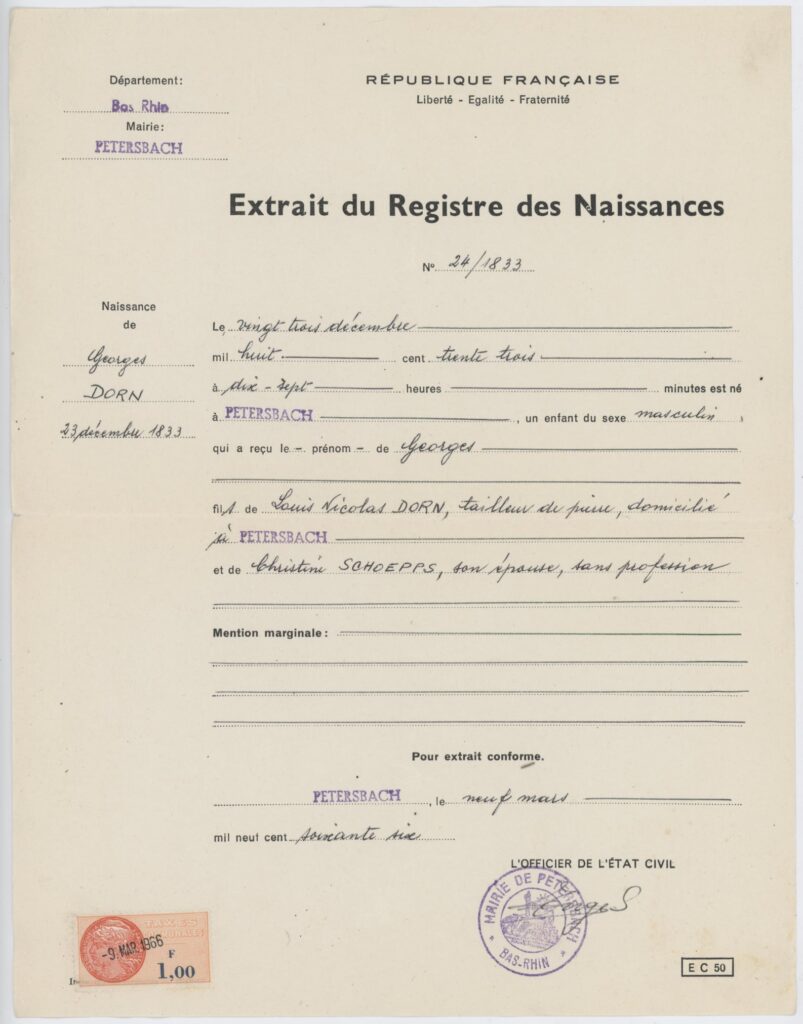 Département:
Bas Rhin
Mairie:
PETERSBACH
RÉPUBLIQUE FRANÇAISE
Liberté - Egalité - Fraternité
Extrait du Registre des Naissances
N° 24/1833
Naissance
de
Georges
DORN
23 décembre 1833
Le vingt trois décembre
mil huit cent trente trois
à dix-sept heures minutes est né
à PETERSBACH, un enfant du sexe masculin
qui a reçu le - prénom - de Georges
fils de Louis Nicolas DORN, tailleur de pierre, domicilié
à PETERSBACH
et de Christine SCHOEPPS, son épouse, sans profession
Mention marginale:
Pour extrait conforme.
PETERSBACH, le neuf mars
mil neuf cent soixante six
L'OFFICIER DE L'ÉTAT CIVIL
MAIRIE DE PETERSBACH
* BAS-RHIN *
TAXES
-9. MAR. 1966
F
1,00
E C 50